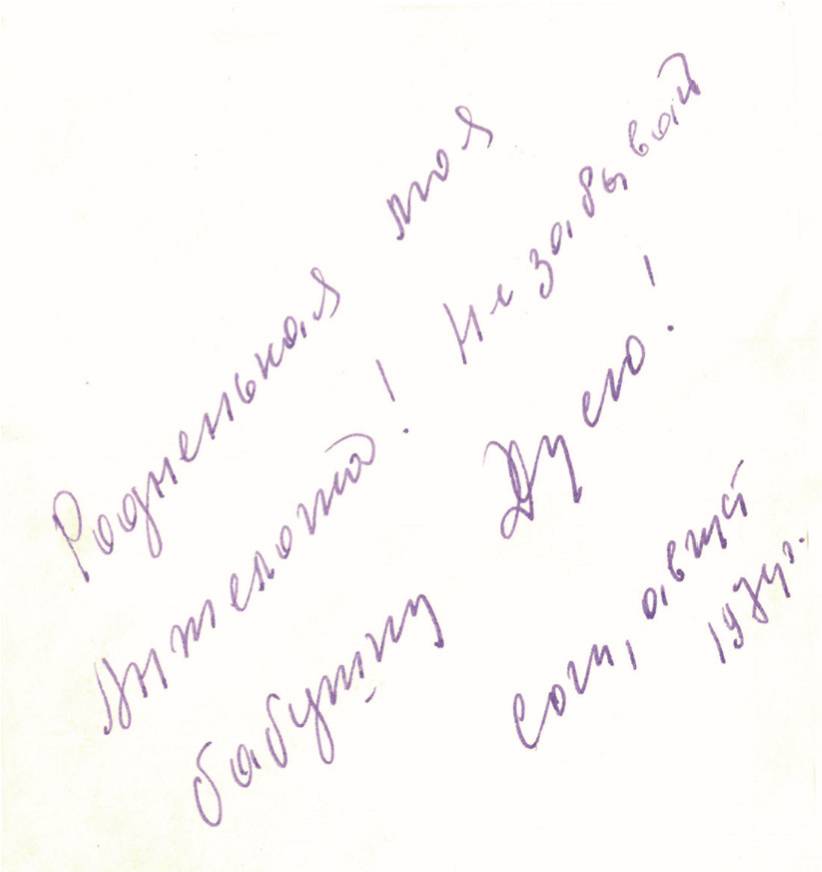 Родненькая моя
Анжелота! Не забывай
бабушку Дусю!
Сочи, август
1974г.